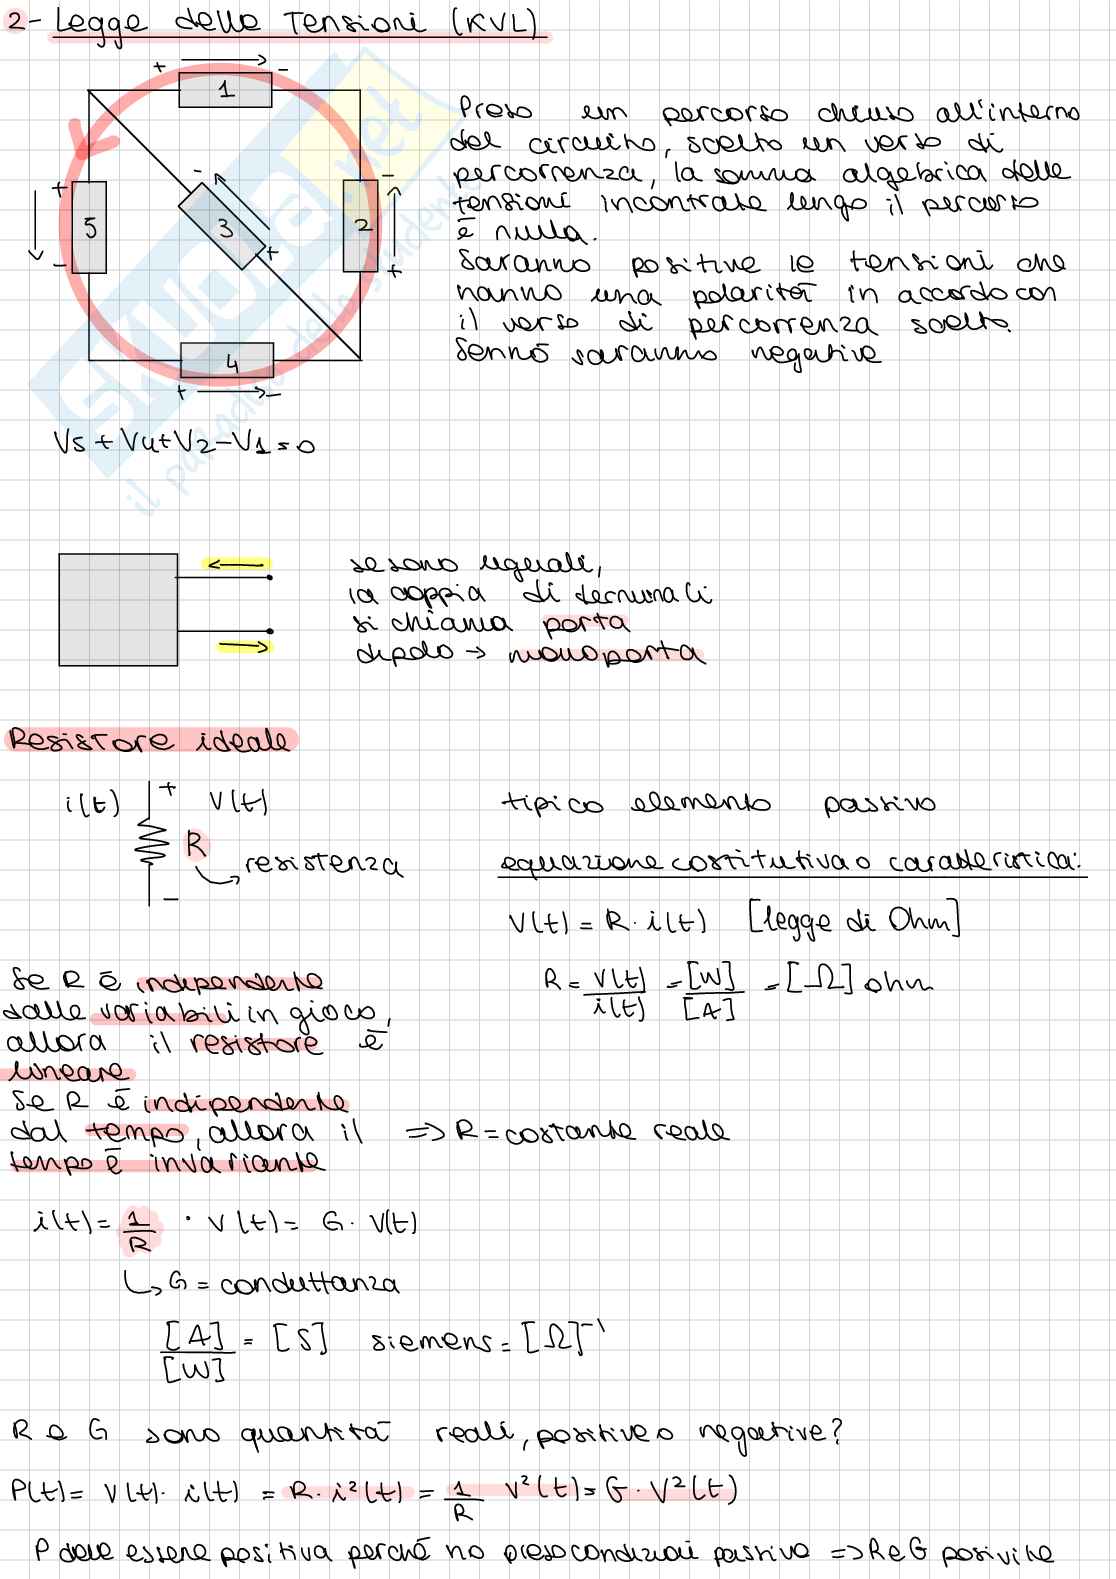 2- Legge delle Tensioni (KVL)
+ -
1
+ - - -
5 3 2
- + +
4
+ -
Preso un percorso chiuso all'interno
del circuito, scelto un verso di
percorrenza, la somma algebrica delle
tensioni incontrate lungo il percorso
è nulla.
Saranno positive le tensioni che
hanno una polarità in accordo con
il verso di percorrenza scelto.
Sennò saranno negative
V5 + V4 + V2 - V1 = 0
se sono uguali,
la coppia di terminali
si chiama porta
dipolo → monoporta
Resistore ideale
i(t) + V(t)
R
resistenza
-
tipico elemento passivo
equazione costitutiva o caratteristica:
V(t) = R · i(t) [legge di Ohm]
R = V(t)/i(t) = [W]/[A] = [Ω] ohm
Se R è indipendente
dalle variabili in gioco,
allora il resistore è
lineare
Se R è indipendente
dal tempo, allora il ⇒ R = costante reale
tempo è invariante
i(t) = 1/R · V(t) = G · V(t)
↳ G = conduttanza
[A]/[W] = [S] siemens = [Ω]⁻¹
R e G sono quantità reali, positive o negative?
P(t) = V(t) · i(t) = R · i²(t) = 1/R V²(t) = G · V²(t)
P deve essere positiva perché ho preso condizioni passive ⇒ R e G positive
skuola.net
il paradiso dello studente